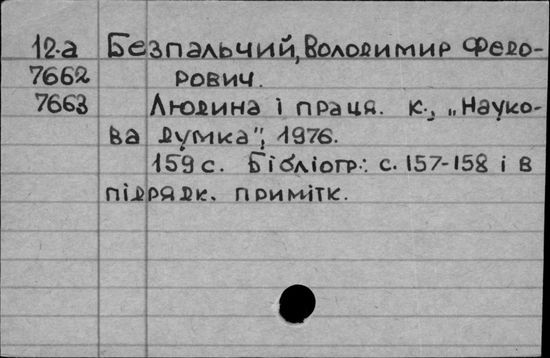 12.а Безпальчий, Володимир Федо-
7662 рович.
7663 Людина і праця. К., „Науко-
ва думка", 1976.
159 с. Бібліогр.: с. 157-158 і в
підрядк. примітк.